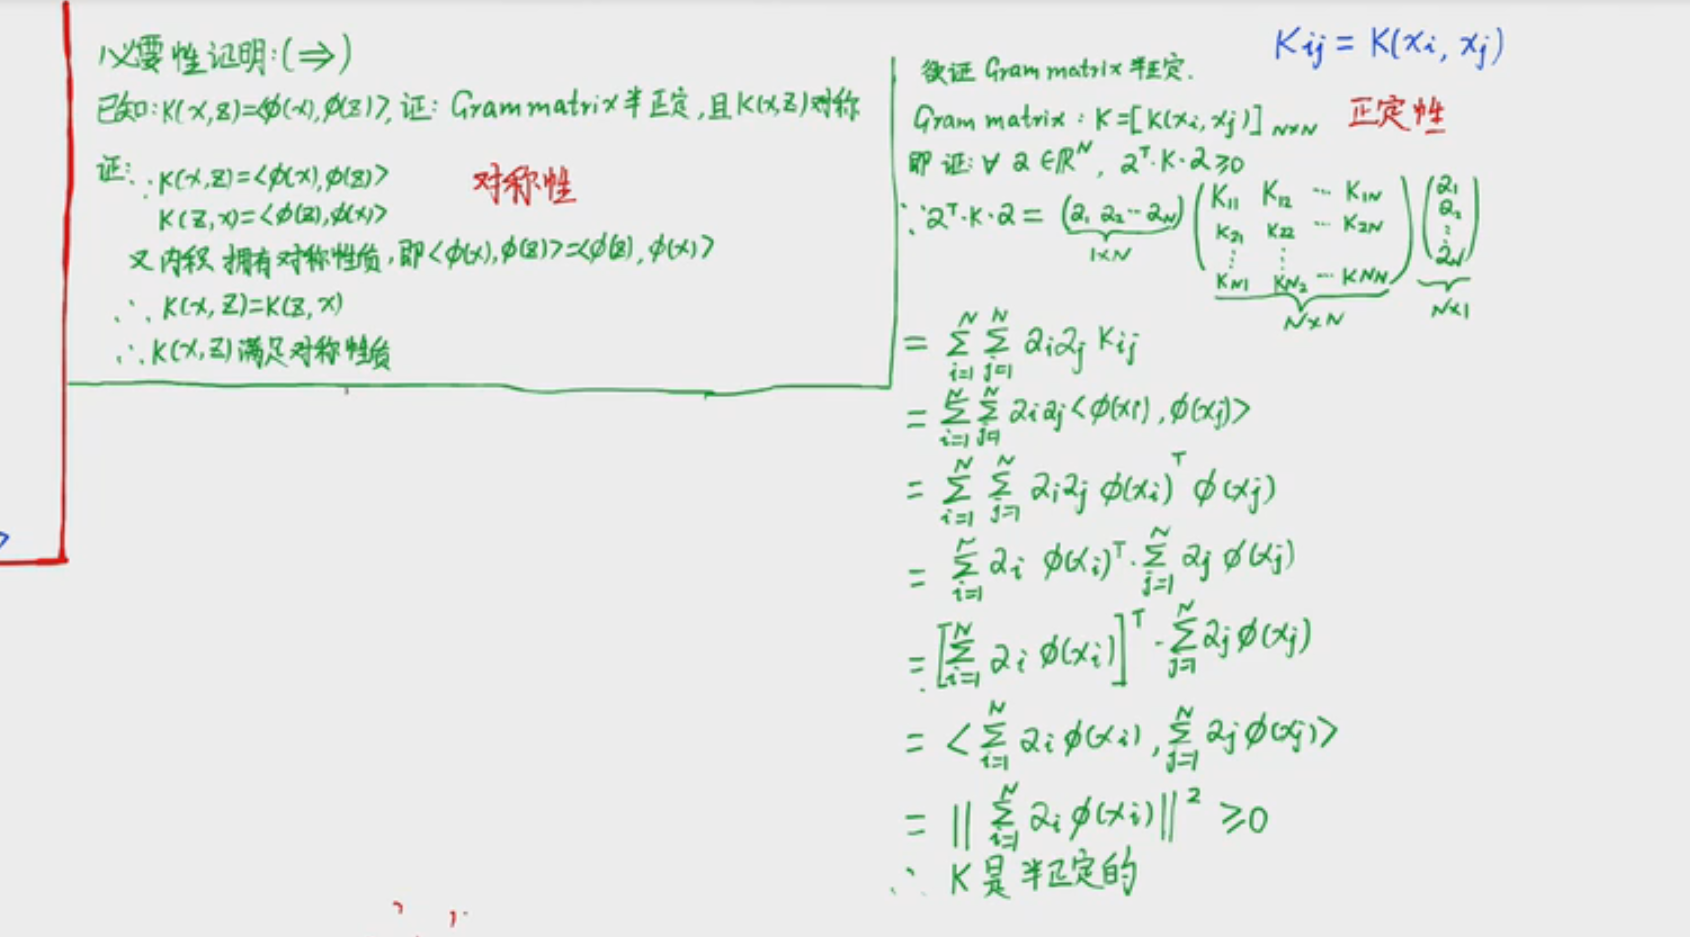 必要性证明:(⇒)
已知:K(x,z)=<φ(x),φ(z)>,证: Gram matrix半正定,且K(x,z)对称
证:∵K(x,z)=<φ(x),φ(z)>
对称性
K(z,x)=<φ(z),φ(x)>
又内积拥有对称性质,即<φ(x),φ(z)>=<φ(z),φ(x)>
∴K(x,z)=K(z,x)
∴K(x,z)满足对称性质
Kij = K(xi, xj)
欲证 Gram matrix 半正定.
Gram matrix : K=[K(xi,xj)] N×N
正定性
即证:∀ α ∈ℝ^N, α^T·K·α≥0
∵α^T·K·α = (α1 α2 ··· αN) (K11 K12 ··· K1N
K21 K22 ··· K2N
⋮ ⋮
KN1 KN2 ··· KNN) (α1
α2
⋮
αN)
1×N N×N N×1
= Σ_{i=1}^N Σ_{j=1}^N αiαj Kij
= Σ_{i=1}^N Σ_{j=1}^N αiαj<φ(xi),φ(xj)>
= Σ_{i=1}^N Σ_{j=1}^N αiαj φ(xi)^T φ(xj)
= Σ_{i=1}^N αi φ(xi)^T·Σ_{j=1}^N αj φ(xj)
= [Σ_{i=1}^N αi φ(xi)]^T·Σ_{j=1}^N αj φ(xj)
= <Σ_{i=1}^N αi φ(xi),Σ_{j=1}^N αj φ(xj)>
= ||Σ_{i=1}^N αi φ(xi)||^2 ≥0
∴ K是半正定的